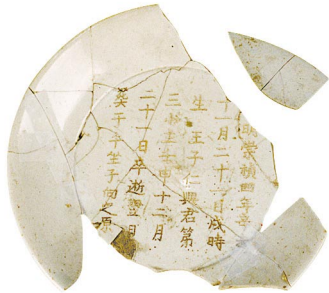 崇禎四年辛
十一月二十一日戌時
生 王子 仁興君第
三 申十二月
二十一日卒逝翌月
葬于午坐子向之原